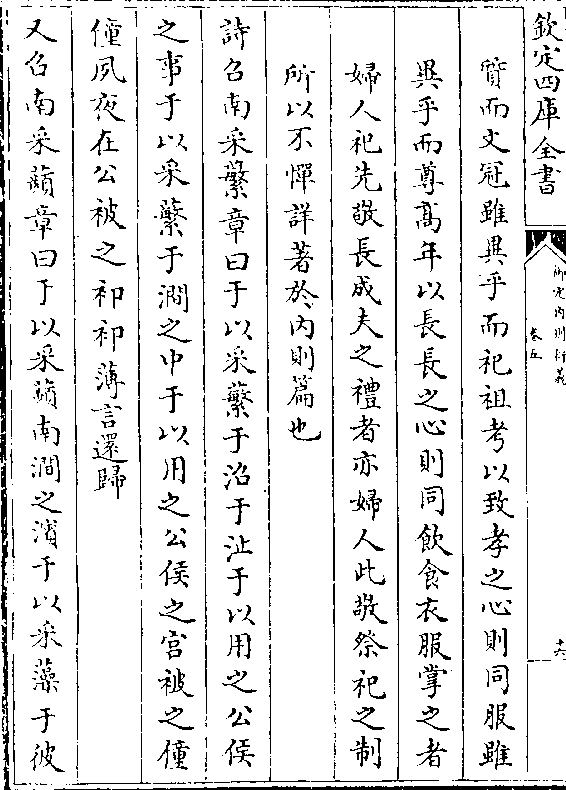 欽定四庫全書
御定內則衍義
卷五
十六
質而文冠雖異乎而祀祖考以致孝之心則同服雖
異乎而尊高年以長長之心則同飲食衣服掌之者
婦人祀先敬長成夫之禮者亦婦人此敬祭祀之制
所以不憚詳著於內則篇也
詩召南采蘩章曰于以采蘩于沼于沚于以用之公侯
之事于以采蘩于澗之中于以用之公侯之宮被之僮
僮夙夜在公被之祁祁薄言還歸
又召南采蘋章曰于以采蘋南澗之濱于以采藻于彼